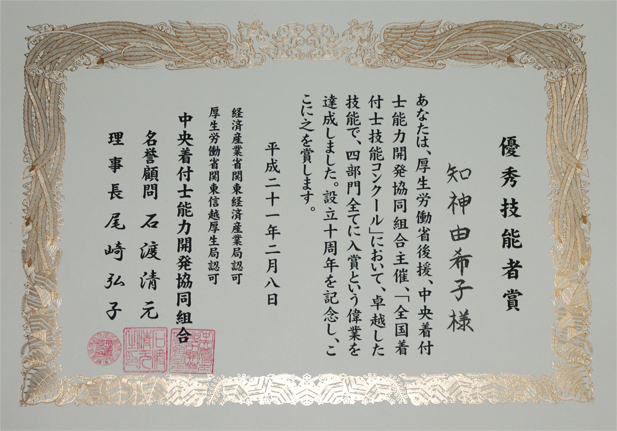 優秀技能者賞
知神由希子様
あなたは、厚生労働省後援、中央着付
士能力開発協同組合主催、「全国着
付士技能コンクール」において、卓越した
技能で、四部門全てに入賞という偉業を
達成しました。設立十周年を記念し、こ
こに之を賞します。
平成二十一年二月八日
経済産業省関東経済産業局認可
厚生労働省関東信越厚生局認可
中央着付士能力開発協同組合
名誉顧問 石渡清元
理事長 尾崎弘子